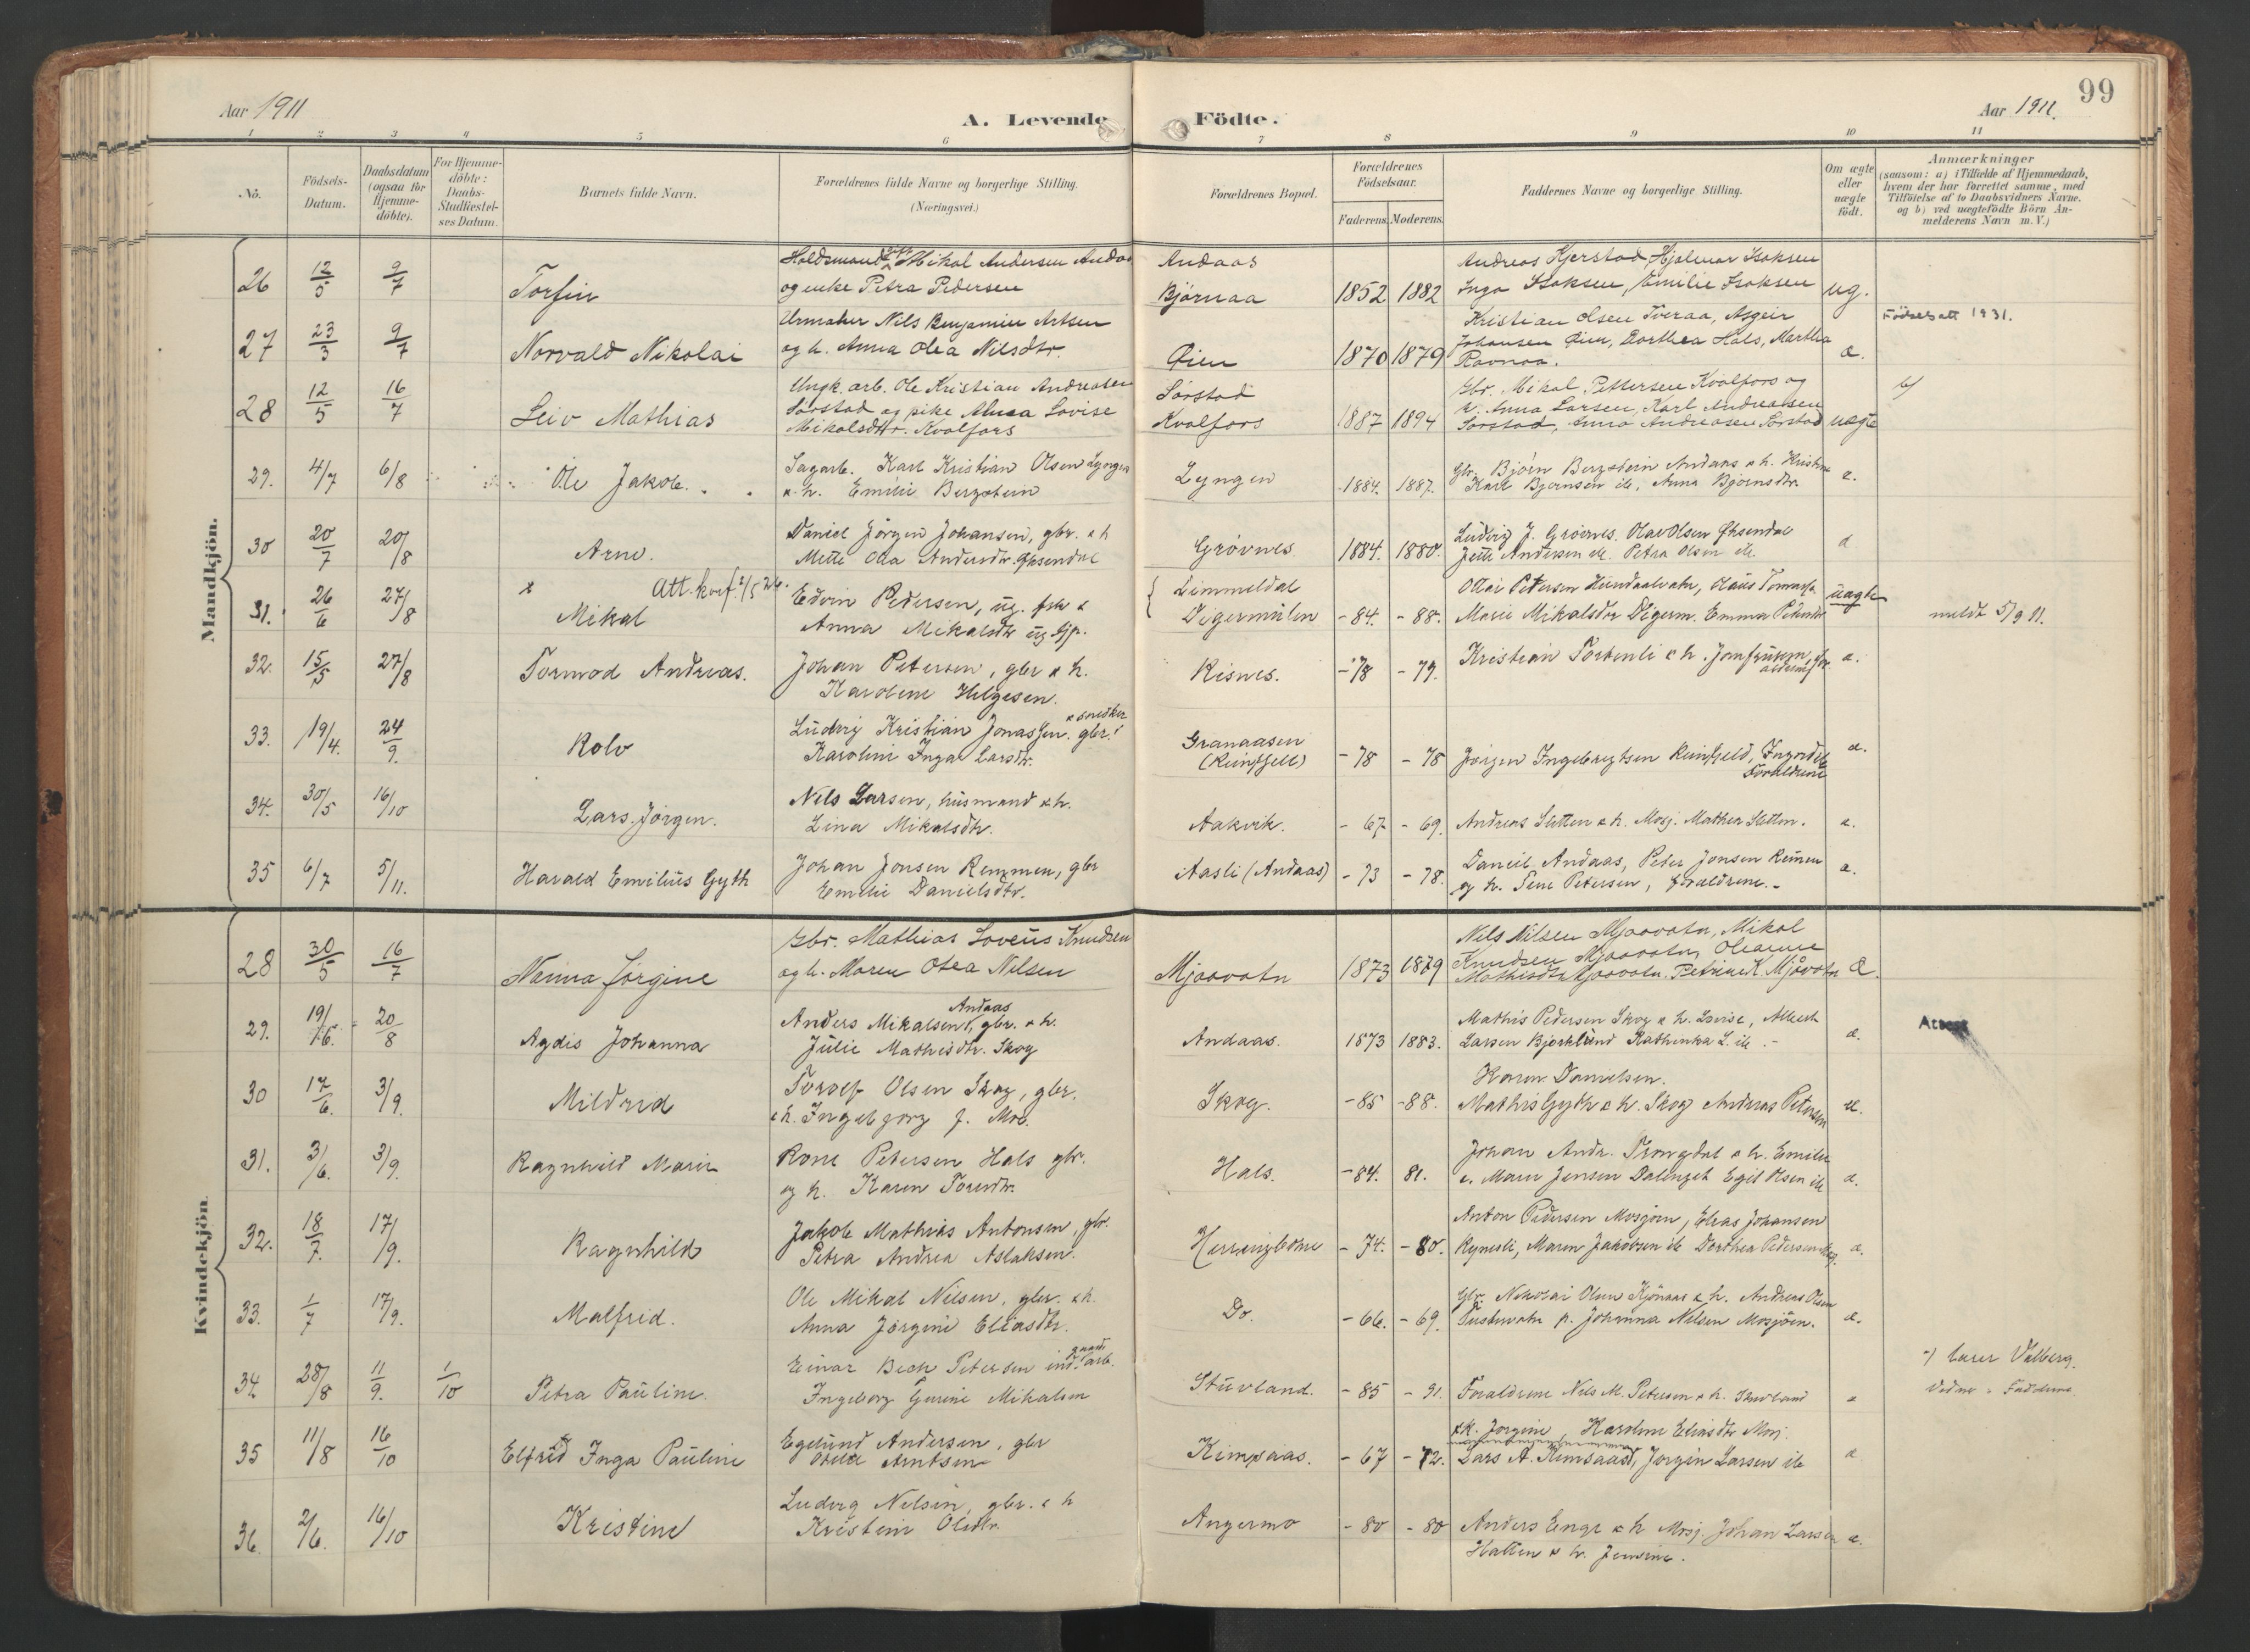 99
Aar 1911 A. Levende Födte. Aar 1911.
1 2 3 4 5 6 7 8 9 10 11
No. Födsels-Datum. Daabsdatum (ogsaa for Hjemme-döbte). For Hjemme-döbte: Daabs-Stadfæstel-ses Datum. Barnets fulde Navn. Forældrenes fulde Navne og borgerlige Stilling. (Næringsvei.) Forældrenes Bopæl. Forældrenes Födselsaar. Faderens. Moderens. Faddernes Navne og borgerlige Stilling. Om ægte eller uægte födt. Anmærkninger (saasom: a) i Tilfælde af Hjemmedaab, hvem der har forrettet samme, med Tilföielse af to Daabsvidners Navne. og b) ved uægtefödte Börn Anmelderens Navn m. V.)
Mandkjön.
26 12/5 9/7 Torfin
Mikal Andersen Andaas
og enke Petra Pedersen
Andaas
Bjørnaa 1852 1882
Andreas Kjerstad, Hjalmar Isaksen
Inga Isaksen, Emilie Isaksen ug.
27 23/3 9/7 Norvald Nikolai
Urmaker Nils Benjamin Artsen
og h. Anna Olea Nilsdtr.
Øien 1870 1879
Kristian Olsen Tveraa, Asgeir
Johansen Øien, Dorthea Hals, Martha
Ravnaa. æ.
Födselsatt. 1931.
28 12/5 16/7 Leiv Mathias
Ungk. arb. Ole Kristian Andreasen
Sørstad og pike Anna Lovise
Mikalsdtr. Kvalfors
Sørstad
Kvalfors 1887 1894
Gbr. Mikal Pettersen Kvalfors og
h. Anna Larsen, Karl Andreassen
Sørstad, Anna Andreasen Sørstad uægte
b/
29. 4/7 6/8 Ole Jakob.
Sagarb. Karl Kristian Olsen Lyngen
& h. Emilie Bergstein
Lyngen 1884. 1887.
Gbr. Bjørn Bergstein Andaas & h. Kristine
Karl Bjørnsen ib. Anna Bjørnsdtr. e.
30 20/7 20/8 Arne.
Daniel Jørgen Johansen, gbr. & h
Mette Olea Andersdtr. Øksendal
Grøvnes 1884. 1880.
Ludvig J. Grøvnes. Olav Olsen Øksendal
Jette Andersen ib. Petra Olsen ib. æ
31. 26/6 27/8 Mikal
Att. konf. 2/5 26.
Edvin Pedersen, ug. fsk &
Anna Mikalsdtr ug tjp.
Limmeldal
Digermulen -84. -88.
Marie Mikalsdtr Digerm. Emma uægte
meldt 5/9 11.
32. 15/5 27/8 Tormod Andreas.
Johan Petersen, gbr & h.
Karoline Helgesen.
Risnes. -78 -79.
Kristian Forbenli & h. æ.
33. 19/4. 24/9. Rolv
Ludvig Kristian Jonassen. gbr. & snedker
Karoline Inga Larsdtr.
Granaasen
(Reinfjell) -78 -78
Jørgen Ingebrigtsen Reinfjeld, Ingvald ib
Forældrene æ.
34. 30/5 16/10 Lars Jørgen.
Nils Larsen, husmand & h.
Lina Mikalsdtr.
Aakvik. -67 -69.
Andreas Sletten & h. Mosj. Mathea Sletten. æ.
35 6/7 5/11. Harald Emilius Gyth
Johan Jonsen Remmen, gbr
Emilie Danielsdtr.
Aasli (Andaas) -73 -78.
Daniel Andaas, Peder Jonsen Remen
og h. Lene Petersen, forældrene. æ.
Kvindekjön.
28 30/5 16/7 Nanna Jørgine
Gbr. Mathias Loveus Knudsen
og h. Maren Olea Nilsen
Mjaavatn 1873 1879
Nils Nilsen Mjaavatn, Mikal
Knudsen Mjaavatn, Oleanne
Mathisdtr Mjaavatn. Petrine K. Mjåvatn æ.
29. 19/6. 20/8 Agdis Johanna
Anders Mikalsen Andaas, gbr. & h.
Julie Mathisdtr. Skog
Andaas. 1873 1883.
Mathis Pedersen Skog & h. Lovise, Albert
Larsen Bjørklund Kathinka L. ib. æ.
Attest
30 17/6. 3/9. Mildrid
Torolf Olsen Skog, gbr.
& h. Ingeborg J. Moe.
Skog. -85 -88.
Karen Danielsen.
Mathis Gyth & h. Skog Andreas Petersen æ.
31. 3/6. 3/9. Ragnhild Marie
Rone Petersen Hals gbr.
og h. Karen Toresdtr.
Hals. -84. 81.
Johan Andr. Trongdal & h. Emilie
e. Maren Jensen Dalenget Egil Olsen ib æ.
32. 18/7. 17/9. Ragnhild
Jakob Mathias Antonsen, gbr.
Petra Andrea Aslaksen.
Herringbotne -74. -80.
Anton Pedersen Mosjøen, Elias Johansen
Rynesli, Maren Jakobsen ib Dorthea Pedersen æ.
33. 1/7 17/9. Malfrid.
Ole Mikal Nilsen, gbr. & h.
Anna Jørgine Eliasdtr.
Do. -66. -69.
Gbr. Nikolai Olsen Kjønaas & h. Andreas Olsen
Tustervatn p. Johanna Nilsen Mosjøen. æ.
34 28/8 11/9. 1/10 Petra Pauline.
Einar Bech Petersen ind. arb.
Ingeborg Gurine Mikalsen
Stuvland. -85 -91.
Forældrene Nils M. Petersen & h. Stuvland æ
lærer Valberg.
Vidner: Fadderne.
35 11/8 16/10 Elfrid Inga Pauline
Egelund Andersen, gbr
Arntsen
Kimsaas. -67 -72.
& K. Jorgine, Karoline Eliasdtr Mosj.
Lars A. Kimsaas, Jørgen Larsen ib æ
36. 2/6. 16/10 Kristine
Ludvig Nilsen, gbr. & h
Kristine Olsdtr.
Angermo -80 -80
Anders Enge & h Mosj. Johan Larsen
Hatten & h. Jensine. æ.